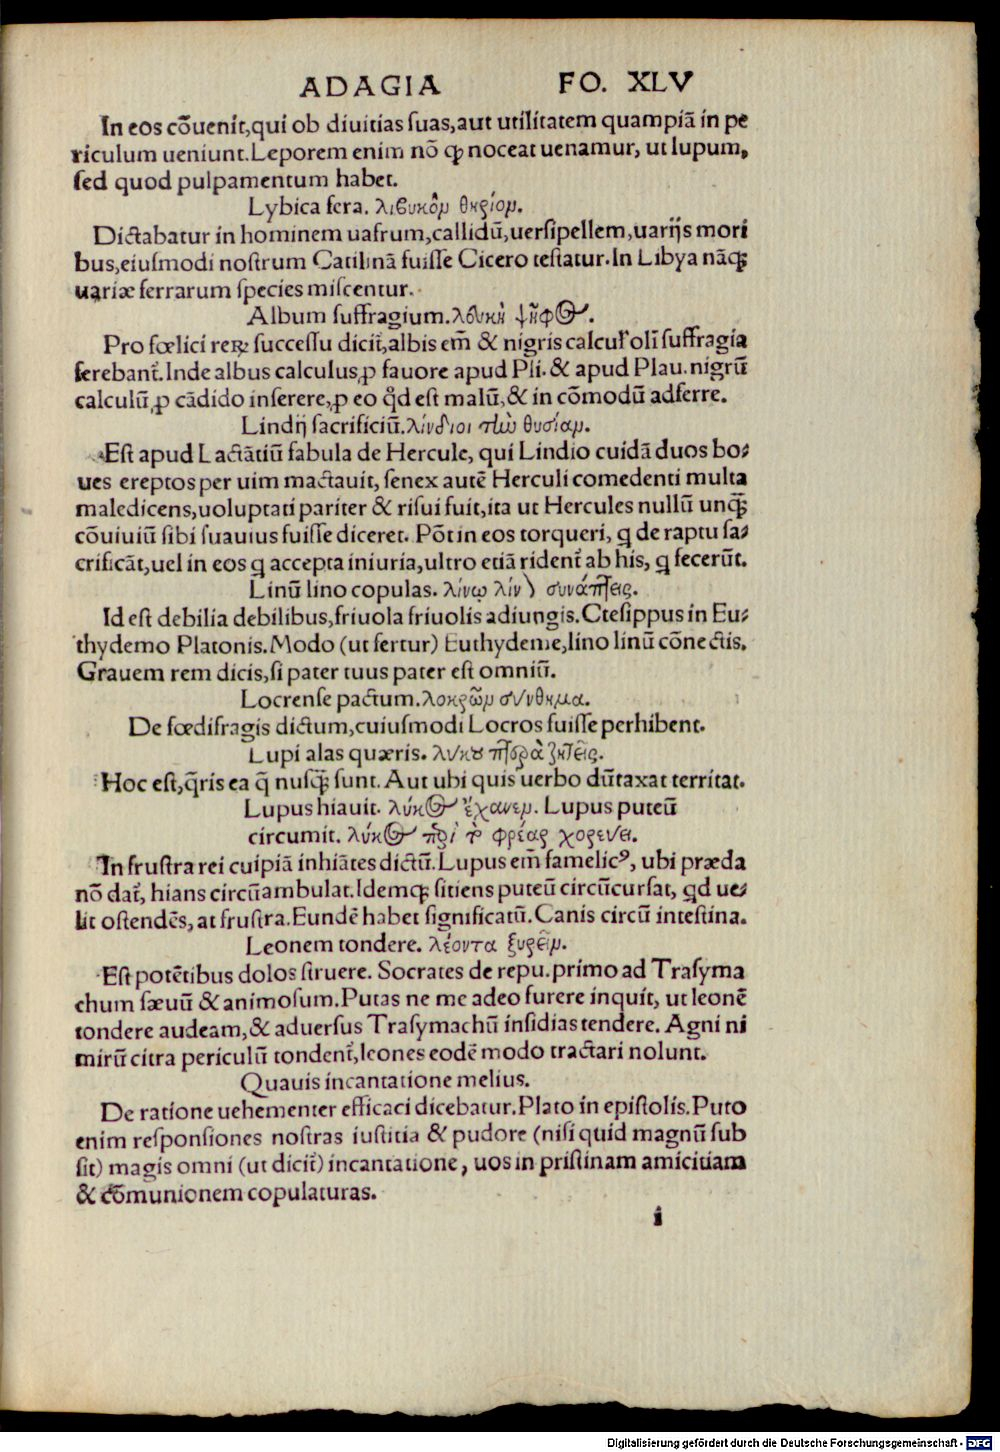 ADAGIA FO. XLV
In eos cōuenit,qui ob diuitias suas,aut utilitatem quampiā in pe
riculum ueniunt.Leporem enim nō ꝙ noceat uenamur, ut lupum,
sed quod pulpamentum habet.
Lybica fera. λιβυκὸν θηρίον.
Dictabatur in hominem uafrum,callidū,uersipellem,uarijs mori
bus,eiusmodi nostrum Catilinā fuisse Cicero testatur.In Libya nāqꝫ
uariæ ferrarum species miscentur.
Album suffragium.λευκὴ ψῆφος.
Pro fœlici reꝝ successu dicit̄,albis em̄ & nigris calcul' oli suffragia
ferebant̄.Inde albus calculus,ꝓ fauore apud Pli.& apud Plau.nigrū
calculū,ꝓ cādido inserere,ꝓ eo qd̄ est malū,& in cōmodū adferre.
Lindij sacrificiū.λίνδιοι τὴν θυσίαν.
Est apud Lactātiū fabula de Hercule, qui Lindio cuidā duos bo⸗
ues ereptos per uim mactauit, senex autē Herculi comedenti multa
maledicens,uoluptati pariter & risui fuit,ita ut Hercules nullū unqꝫ̄
cōuiuiū sibi suauius fuisse diceret. Pōt in eos torqueri, q de raptu sa⸗
crificāt,uel in eos q accepta iniuria,ultro etiā rident̄ ab his, q fecerūt.
Linū lino copulas. λίνῳ λίνον συνάπτεις.
Id est debilia debilibus,friuola friuolis adiungis.Ctesippus in Eu⸗
thydemo Platonis.Modo (ut fertur) Euthydeme,lino linū cōnectis.
Grauem rem dicis,si pater tuus pater est omniū.
Locrense pactum.λοκρῶν σύνθημα.
De fœdifragis dictum,cuiusmodi Locros fuisse perhibent.
Lupi alas quæris. λύκου πτερὰ ζητεῖς.
Hoc est,q̄ris ea q̄ nusqꝫ̄ sunt. Aut ubi quis uerbo dūtaxat territat.
Lupus hiauit. λύκος ἔχανεν. Lupus puteū
circumit. λύκος περὶ τὸ φρέας χορεύει.
In frustra rei cuipiā inhiātes dictū.Lupus em̄ famelicꝰ, ubi præda
nō dat̄, hians circūambulat.Idemqꝫ sitiens puteū circūcursat, qd ue⸗
lit ostendēs, at frustra.Eundē habet significatū.Canis circū intestina.
Leonem tondere. λέοντα ξυρεῖν.
Est potētibus dolos struere. Socrates de repu.primo ad Trasyma
chum sæuū & animosum.Putas ne me adeo furere inquit, ut leonē
tondere audeam,& aduersus Trasymachū insidias tendere. Agni ni
mirū citra periculū tondent̄,leones eodē modo tractari nolunt.
Quauis incantatione melius.
De ratione uehementer efficaci dicebatur.Plato in epistolis.Puto
enim responsiones nostras iustitia & pudore (nisi quid magnū sub
sit) magis omni (ut dicit̄) incantatione, uos in pristinam amicitiam
& cōmunionem copulaturas.
i
Digitalisierung gefördert durch die Deutsche Forschungsgemeinschaft - DFG